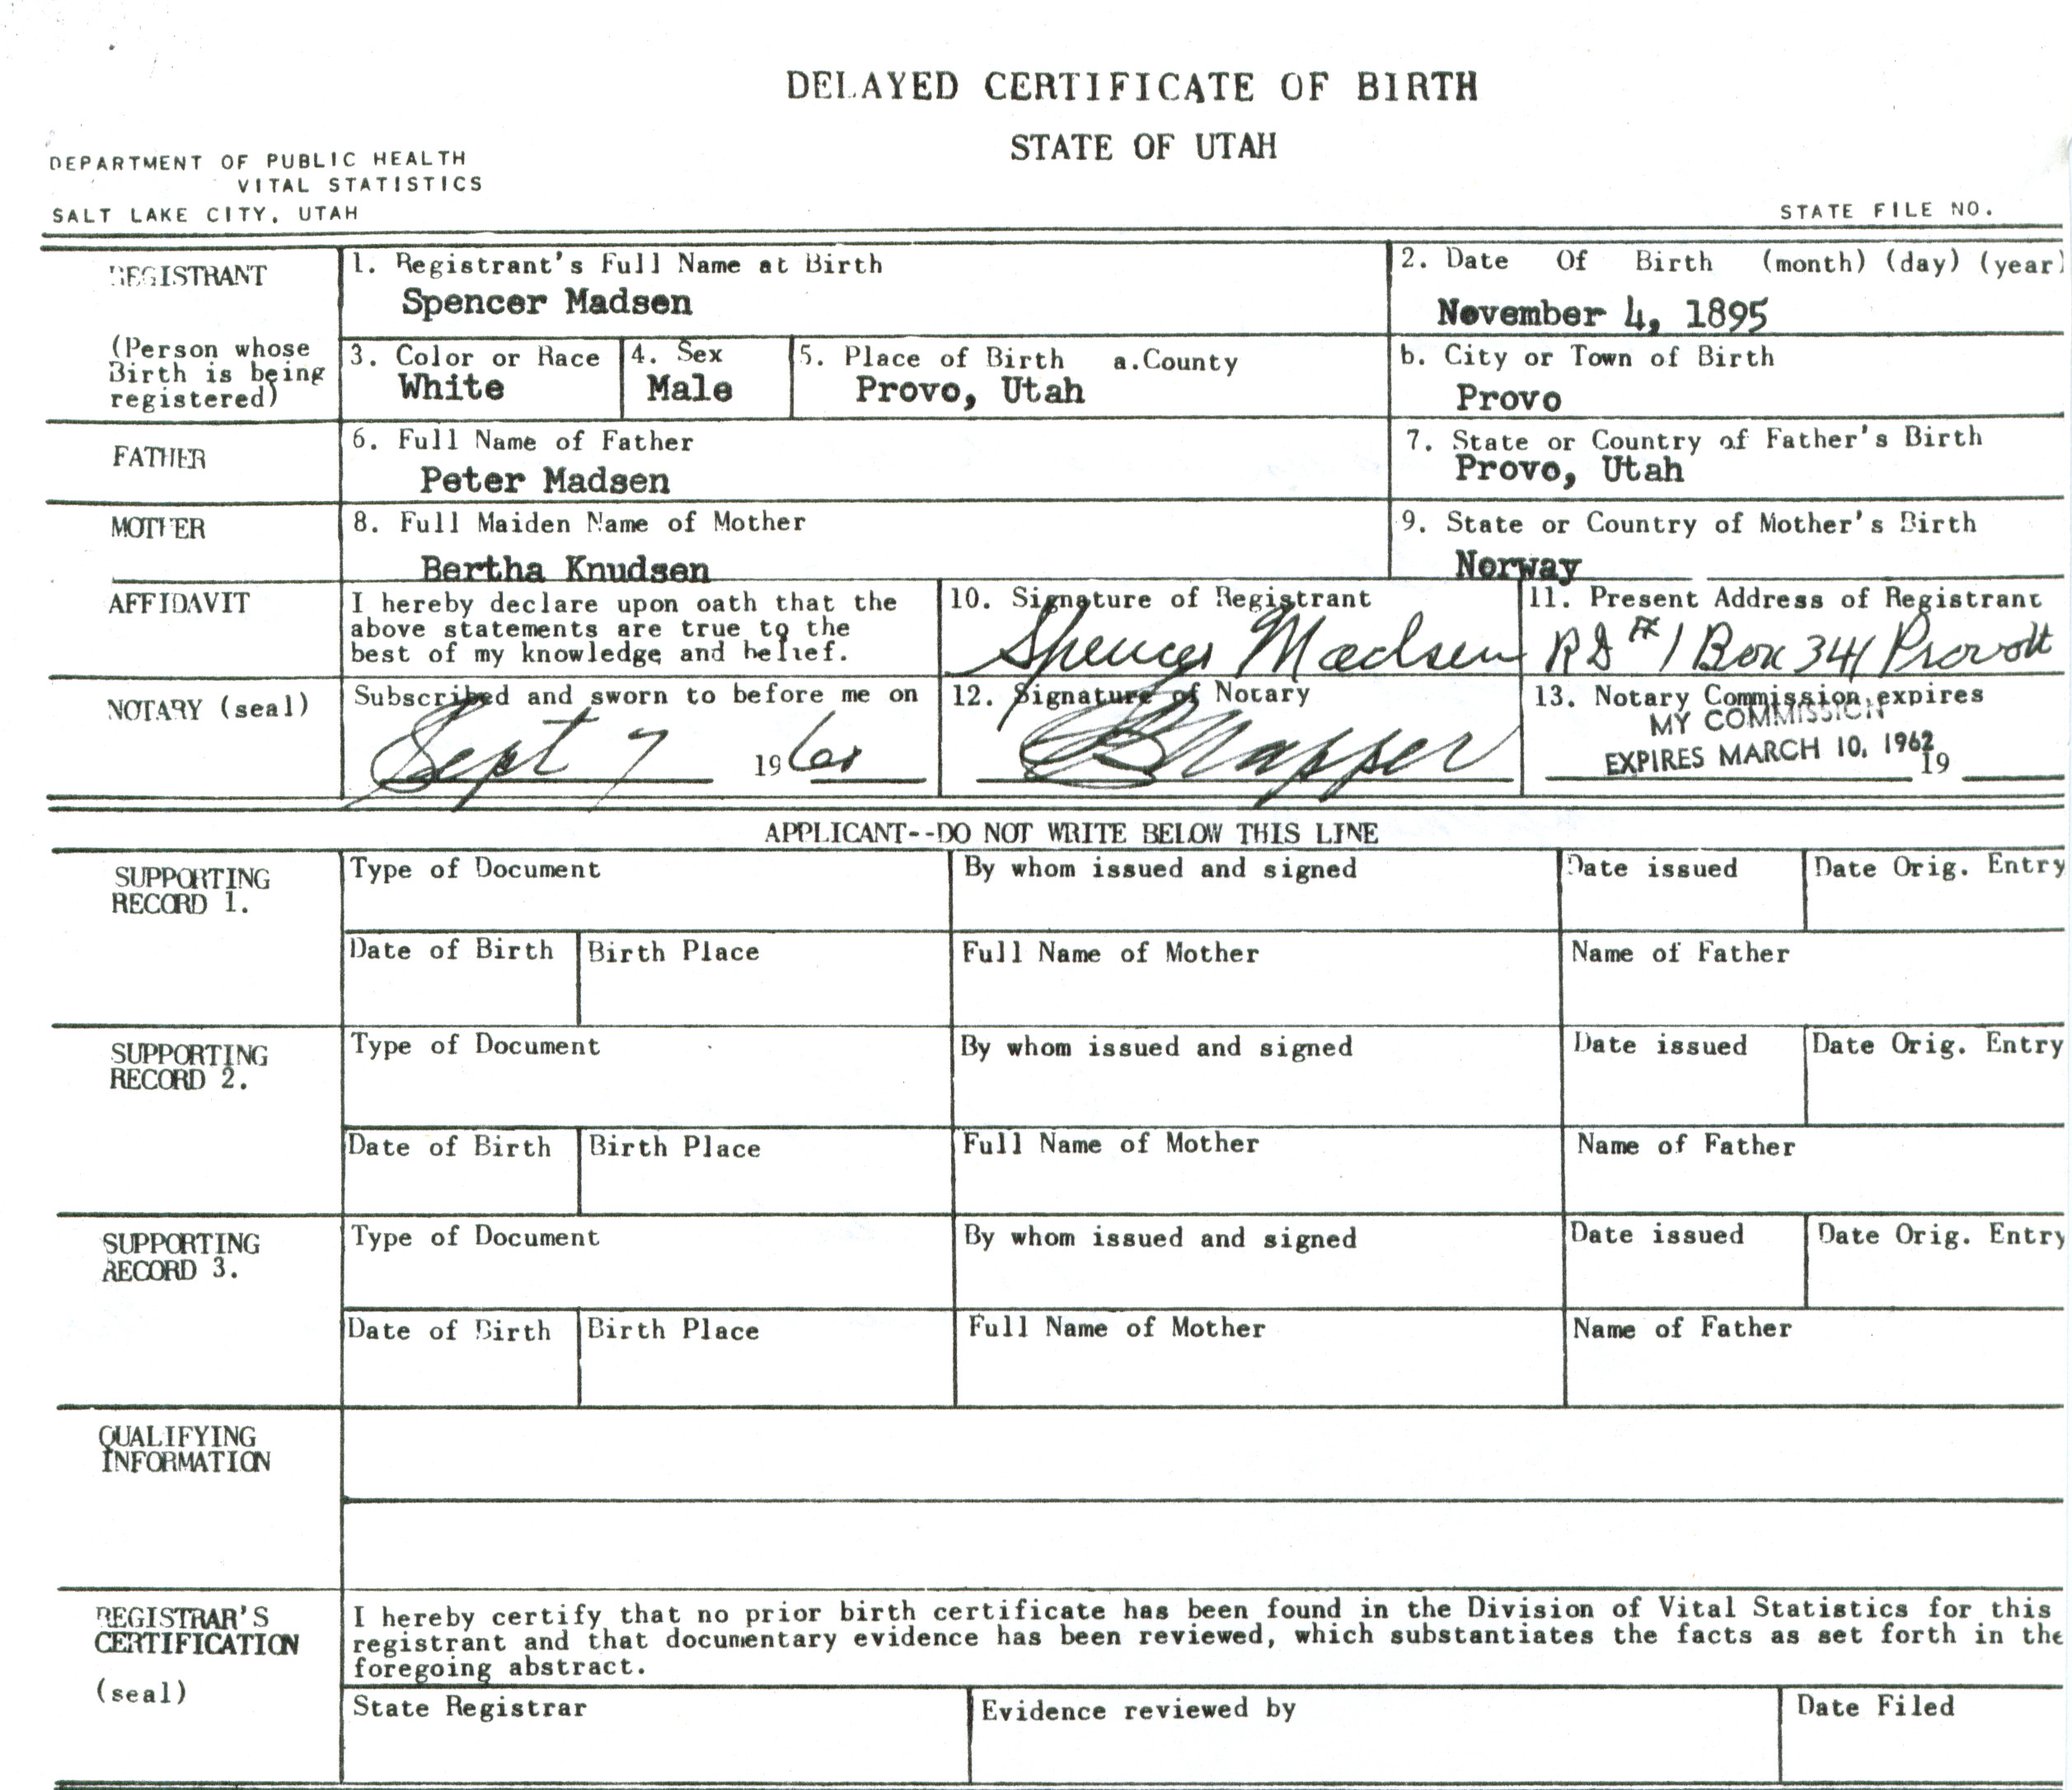 DELAYED CERTIFICATE OF BIRTH
STATE OF UTAH
DEPARTMENT OF PUBLIC HEALTH
VITAL STATISTICS
SALT LAKE CITY, UTAH
STATE FILE NO.
REGISTRANT
(Person whose
Birth is being
registered)
1. Registrant's Full Name at Birth
Spencer Madsen
2. Date Of Birth (month) (day) (year)
November 4, 1895
3. Color or Race
White
4. Sex
Male
5. Place of Birth a.County
Provo, Utah
b. City or Town of Birth
Provo
FATHER
6. Full Name of Father
Peter Madsen
7. State or Country of Father's Birth
Provo, Utah
MOTHER
8. Full Maiden Name of Mother
Bertha Knudsen
9. State or Country of Mother's Birth
Norway
AFFIDAVIT
I hereby declare upon oath that the
above statements are true to the
best of my knowledge and belief.
10. Signature of Registrant
Spencer Madsen
11. Present Address of Registrant
RD #1 Box 341 Provo
NOTARY (seal)
Subscribed and sworn to before me on
Sept 7 19
12. Signature of Notary
13. Notary Commission expires
MY COMMISSION
EXPIRES MARCH 10, 1962
19
APPLICANT--DO NOT WRITE BELOW THIS LINE
SUPPORTING
RECORD 1.
Type of Document
By whom issued and signed
Date issued
Date Orig. Entry
Date of Birth
Birth Place
Full Name of Mother
Name of Father
SUPPORTING
RECORD 2.
Type of Document
By whom issued and signed
Date issued
Date Orig. Entry
Date of Birth
Birth Place
Full Name of Mother
Name of Father
SUPPORTING
RECORD 3.
Type of Document
By whom issued and signed
Date issued
Date Orig. Entry
Date of Birth
Birth Place
Full Name of Mother
Name of Father
QUALIFYING
INFORMATION
REGISTRAR'S
CERTIFICATION
(seal)
I hereby certify that no prior birth certificate has been found in the Division of Vital Statistics for this
registrant and that documentary evidence has been reviewed, which substantiates the facts as set forth in the
foregoing abstract.
State Registrar
Evidence reviewed by
Date Filed